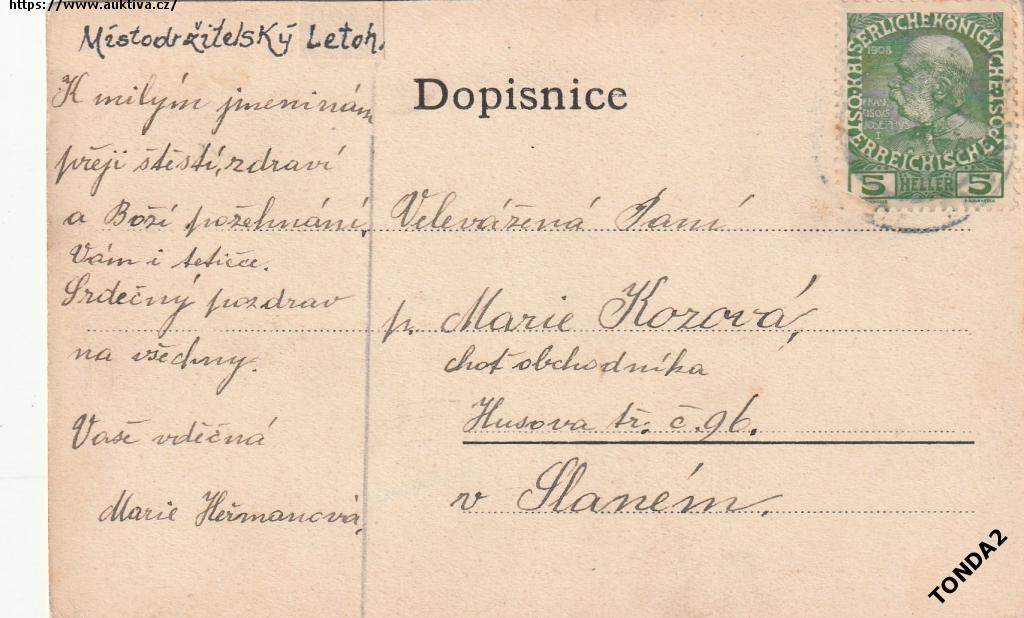 https://www.auktiva.cz/
Místodržitelský Letoh.
K milým jmeninám
přeji štěstí, zdraví
a Boží požehnání,
Vám i tetičce.
Srdečný pozdrav
na všechny.
Vaše vděčná
Marie Heřmanová,
Dopisnice
Velevážená Paní
p. Marie Kozová,
choť obchodníka
Husova tř. č. 96.
v Slaném.
KAISERLICHE KÖNIGLICHE ÖSTERREICHISCHE POST
1908
FRANCISCUS
JOSEPHUS
I
5 HELLER 5
TONDA2